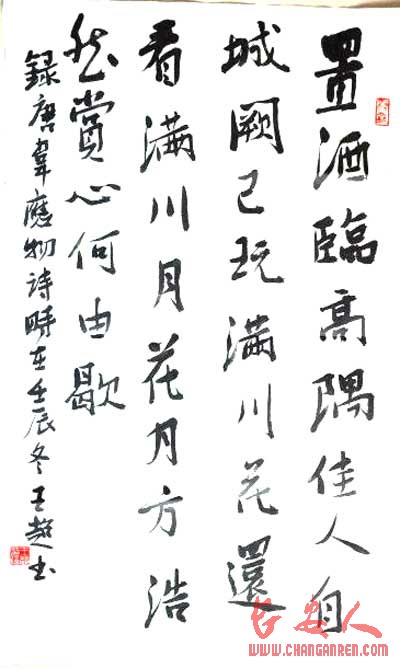 置酒臨高隅佳人自
城阙已玩满川花還
看满川月花月方浩
然赏心何由歇
録唐韋應物诗時在壬辰冬王超书
长安人
WWW.CHANGANREN.COM